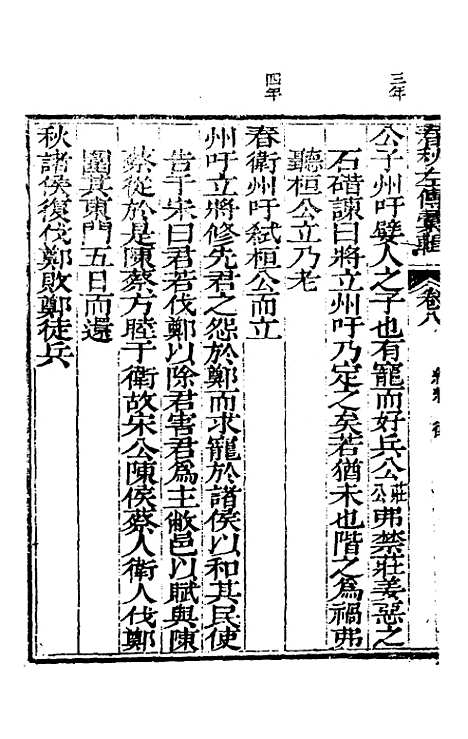 三年
四年
春秋左傳彙輯
卷八
公子州吁嬖人之子也有寵而好兵公莊公弗禁莊姜惡之
石碏諫曰將立州吁乃定之矣若猶未也階之為禍弗
聽桓公立乃老
春衛州吁弒桓公而立
州吁立將修先君之怨於鄭而求寵於諸侯以和其民使
告于宋曰君若伐鄭以除君害君為主敝邑以賦與陳
蔡從於是陳蔡方睦于衛故宋公陳侯蔡人衛人伐鄭
圍其東門五日而還
秋諸侯復伐鄭敗鄭徒兵